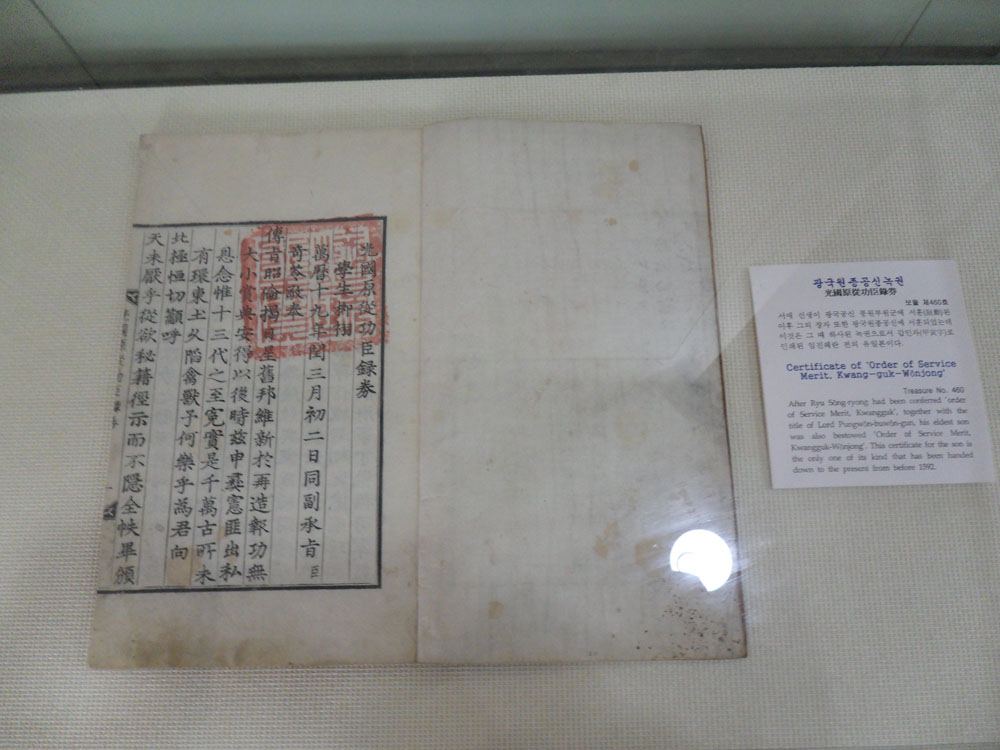 光國原從功臣錄券
學生柳袽
萬曆十九年閏三月初二日同副承旨臣
奇苓敬奉
傳旨昭倫揭日星舊邦維新於再造報功無
大小賞典安得以後時玆申彛憲匪出私
恩念惟十三代之至寃實是千萬古所未
有環東土久陷禽獸予何樂乎爲君向
北極恒切顲呼
天未厭乎從欲秘籍徑示而不隱全帙畢頒
광국원종공신녹권
光國原從功臣錄券
보물 제460호
서애 선생이 광국공신 풍원부원군에 서훈(敍勳)된
이후 그의 장자 또한 광국원종공신에 서훈되었는데
이것은 그 때 하사된 녹권으로서 갑인자(甲寅字)로
인쇄된 임진왜란 전의 유일본이다.
Certificate of 'Order of Service
Merit, Kwang-guk-Wŏnjong'
Treasure No. 460
After Ryu Sŏng-ryong had been conferred 'order
of Service Merit, Kwangguk', together with the
title of Lord Pungwŏn-buwŏn-gun, his eldest son
was also bestowed 'Order of Service Merit,
Kwangguk-Wŏnjong'. This certificate for the son is
the only one of its kind that has been handed
down to the present from before 1592.